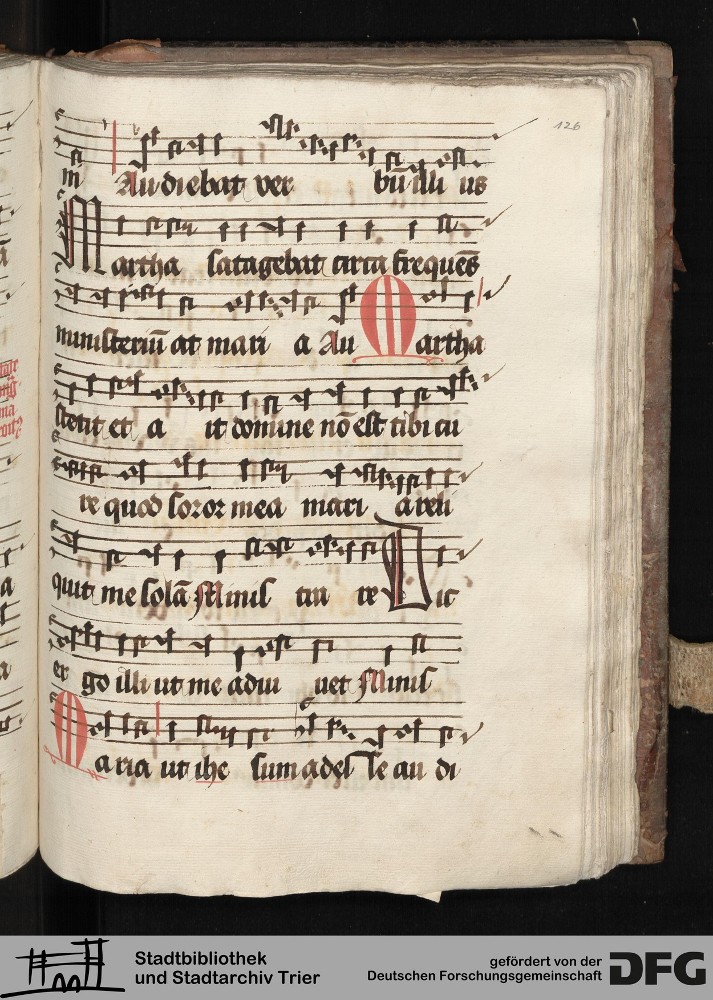 126
ni Audiebat ver bū illi us
Martha satagebat circa frequēs
ministeriū at mari a Au Martha
stetit et a it domine nō est tibi cu
re quod soror mea mari a reli
quit me solā Minis tra re Dic
er go illi ut me adiu uet Minis
Maria ut ihe sum adesse au di
Stadtbibliothek
und Stadtarchiv Trier
gefördert von der
Deutschen Forschungsgemeinschaft
DFG